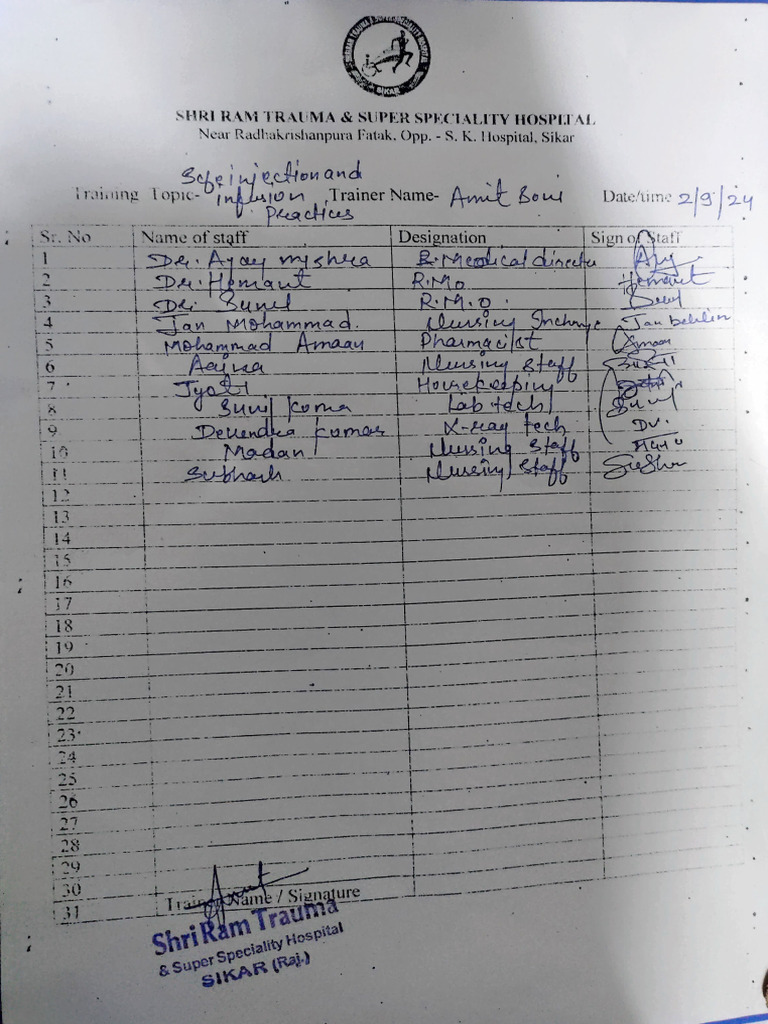 SHRI RAM TRAUMA & SUPER SPECIALITY HOSPITAL
SIKAR
SHRI RAM TRAUMA & SUPER SPECIALITY HOSPITAL
Near Radhakrishanpura Fatak, Opp. - S. K. Hospital, Sikar
Training Topic- Safe injection and infusion Practices Trainer Name- Amit Date/time 2/9/24
Sr. No Name of staff Designation Sign of Staff
1 Dr. Ajay Mishra Medical director
2 Dr. Hemant R.M.O Hemant
3 Dr. Sunil R.M.O.
4 Jan Mohammad. Nursing Incharge Jan
5 Mohammad Amaan Pharmacist Amaan
6 Nursing Staff
7 Jyoti Housekeeping
8 Sunil Kuma Lab tech
9 Devendra Kumar X-ray tech DV.
10 Madan Nursing Staff
11 Subhash Nursing Staff
12
13
14
15
16
17
18
19
20
21
22
23
24
25
26
27
28
29
30
31 Trainer Name / Signature
Shri Ram Trauma
& Super Speciality Hospital
SIKAR (Raj.)